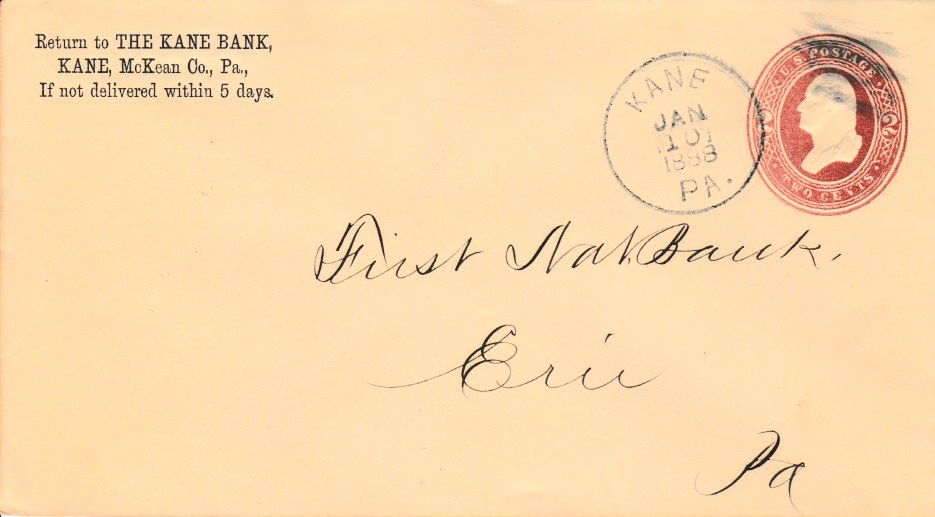 Return to THE KANE BANK,
KANE, McKean Co., Pa.,
If not delivered within 5 days.
KANE
JAN
10
1888
PA.
U.S. POSTAGE
2 2
TWO CENTS
First Nat. Bank.
Erie
Pa